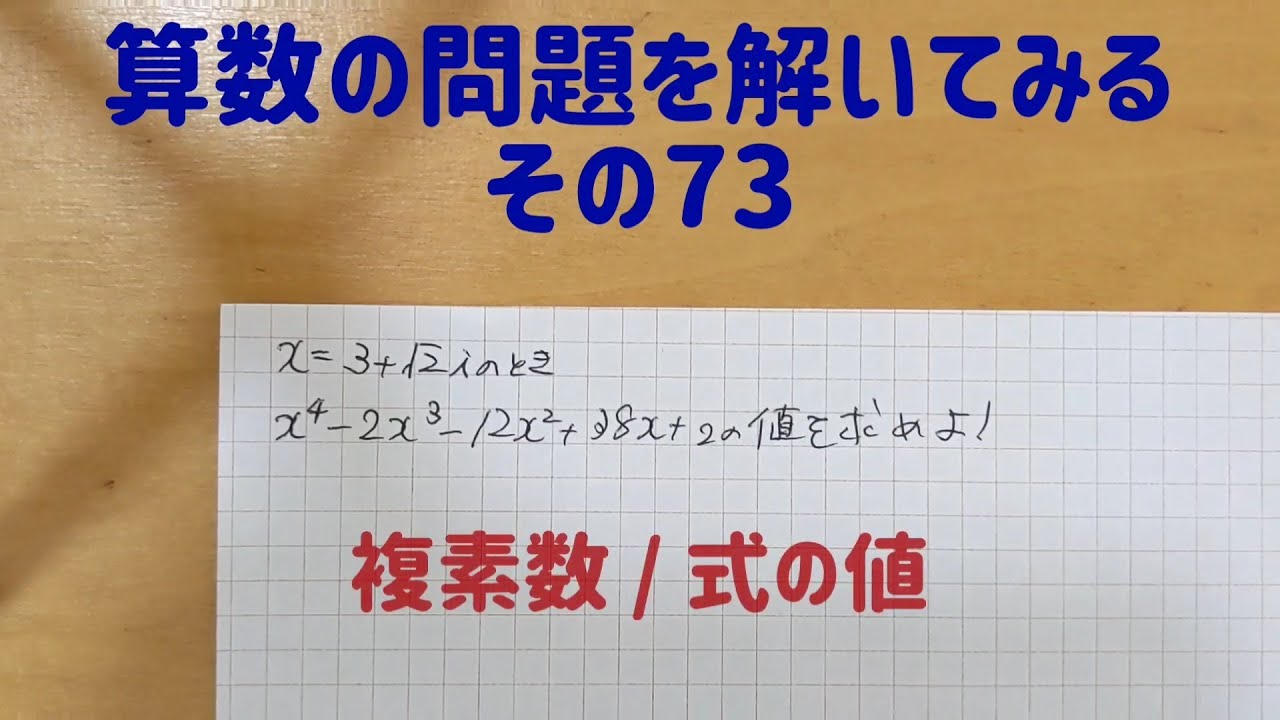 算数の問題を解いてみる
その73
x=3+√2iのとき
x⁴-2x³-12x²+38x+2の値を求めよ!
複素数/式の値